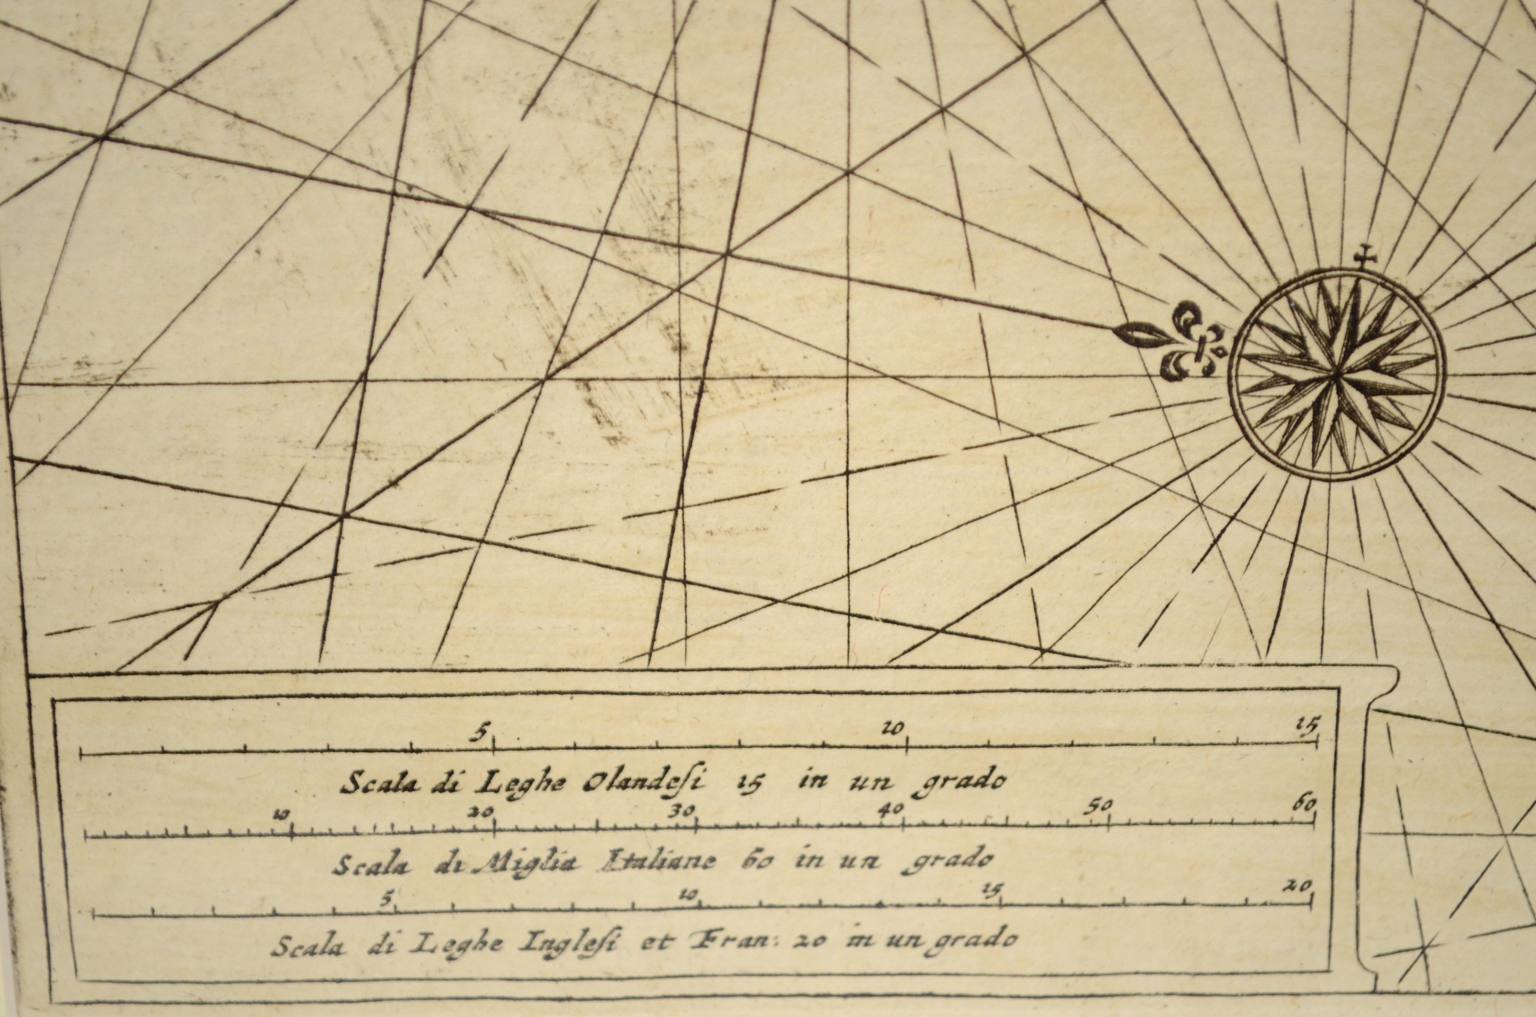 5 10 15
Scala di Leghe Olandeſi 15 in un grado
10 20 30 40 50 60
Scala di Miglia Italiane 60 in un grado
5 10 15 20
Scala di Leghe Ingleſi et Fran: 20 in un grado